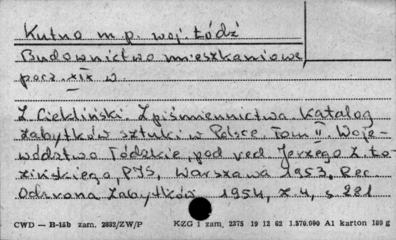 Kutno m.p. woj. Łódź
Budownictwo mieszkaniowe
pocz. XIX w
Z. Ciekliński. Z piśmiennictwa. Katalog
zabytków sztuki w Polsce Tom II. Woje-
wództwo Łódzkie, pod red. Jerzego Z. Ło-
zińskiego, PIS, Warszawa 1953. Rec
Ochrona Zabytków 1954, z. 4, s 281
CWD — B-15b zam. 2632/ZW/P KZG 1 zam, 2375 19 12 62 1.570.000 A1 karton 180 g